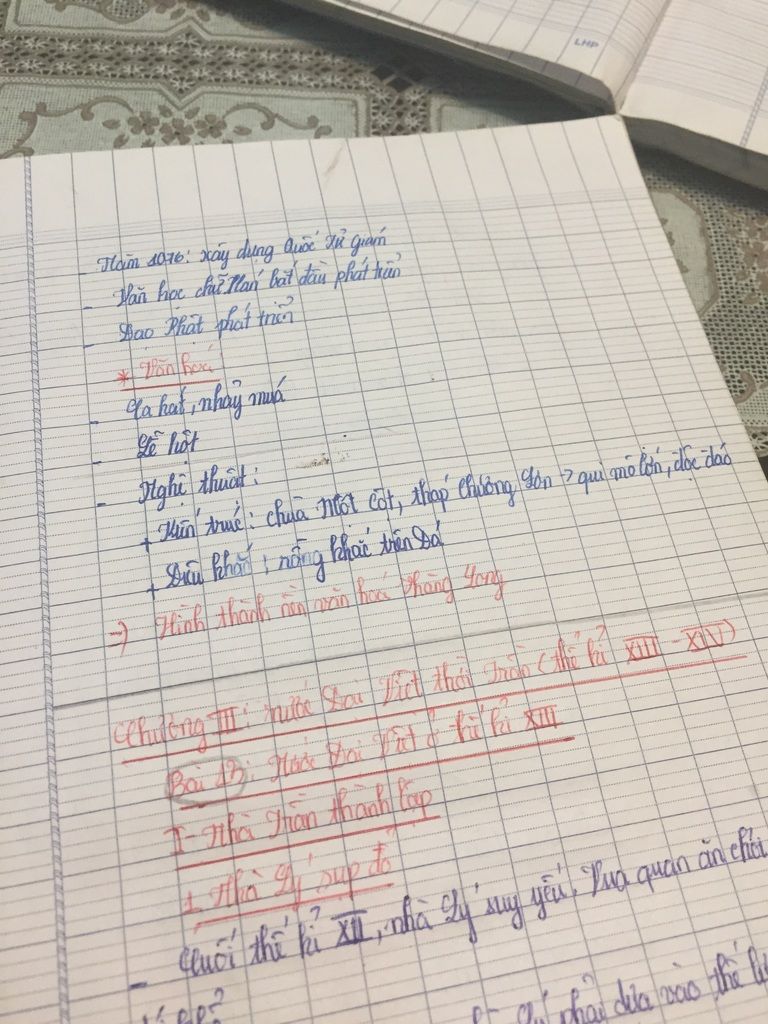 LHP
- Năm 1076: xây dựng Quốc Tử giám
- Văn học chữ Hán bắt đầu phát triển
- Đạo Phật phát triển
* Văn hoá
- Ca hát, nhảy múa
- Lễ hội
- Nghệ thuật:
+ Kiến trúc: chùa Một Cột, tháp Chương Sơn → qui mô lớn, độc đáo
+ Điêu khắc: nồng khắc trên Đá
=> Hình thành nền văn hoá Thăng Long
Chương III: nước Đại Việt thời Trần (thế kỉ XIII - XIV)
Bài 13: Nước Đại Việt ở thế kỉ XIII
I- Nhà Trần thành lập
1. Nhà Lý sụp đổ
- Cuối thế kỉ XII, nhà Lý suy yếu. Vua quan ăn chơi
Lý phải dựa vào thế lực